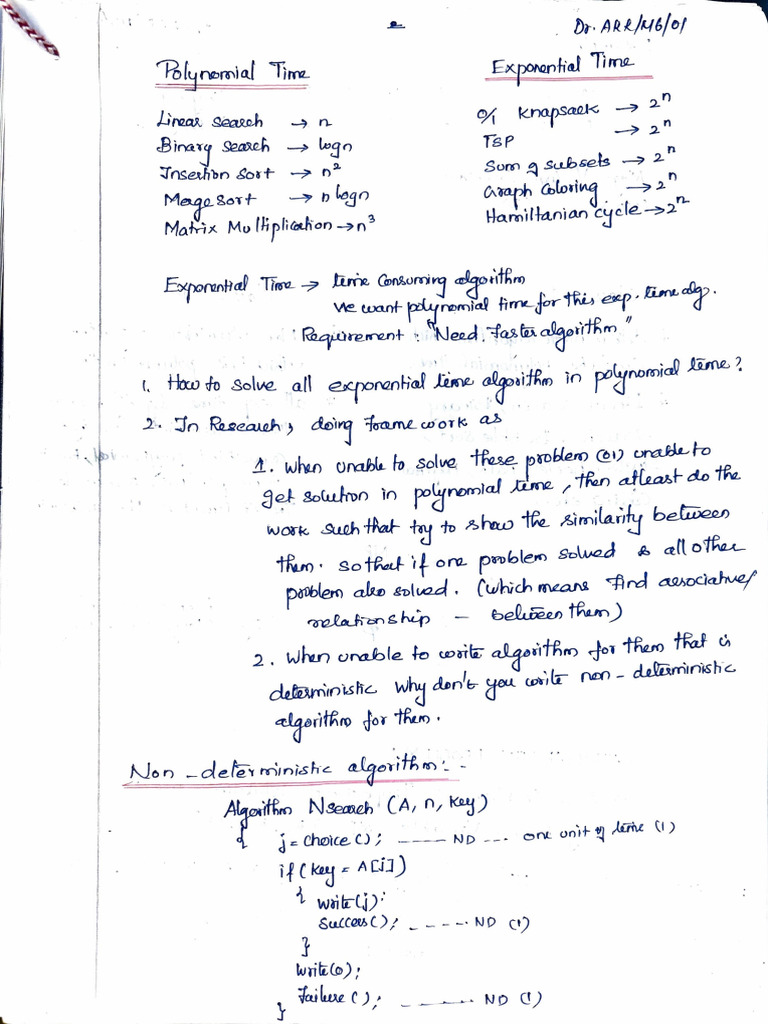 2
Dr. ARR/M6/01
Polynomial Time
Linear search → n
Binary search → logn
Insertion sort → n²
Merge sort → n logn
Matrix Multiplication → n³
Exponential Time
0/1 Knapsack → 2ⁿ
TSP → 2ⁿ
Sum of subsets → 2ⁿ
Graph Coloring → 2ⁿ
Hamiltanian cycle → 2ⁿ
Exponential Time → time consuming algorithm
We want polynomial time for this exp. time alg.
Requirement : "Need faster algorithm"
1. How to solve all exponential time algorithm in polynomial time?
2. In Research, doing frame work as
1. When unable to solve these problem (or) unable to
get solution in polynomial time, then atleast do the
work such that try to show the similarity between
them. so that if one problem solved & all other
problem also solved. (which means find associative/
relationship – between them)
2. When unable to write algorithm for them that is
deterministic why don't you write non-deterministic
algorithm for them.
Non-deterministic algorithm:-
Algorithm Nsearch (A, n, key)
{ j = choice(); ----- ND --- one unit of time (1)
if (key = A[j])
{ write(j);
Success(); ----- ND (1)
}
write(0);
Failure(); ------- ND (1)
}